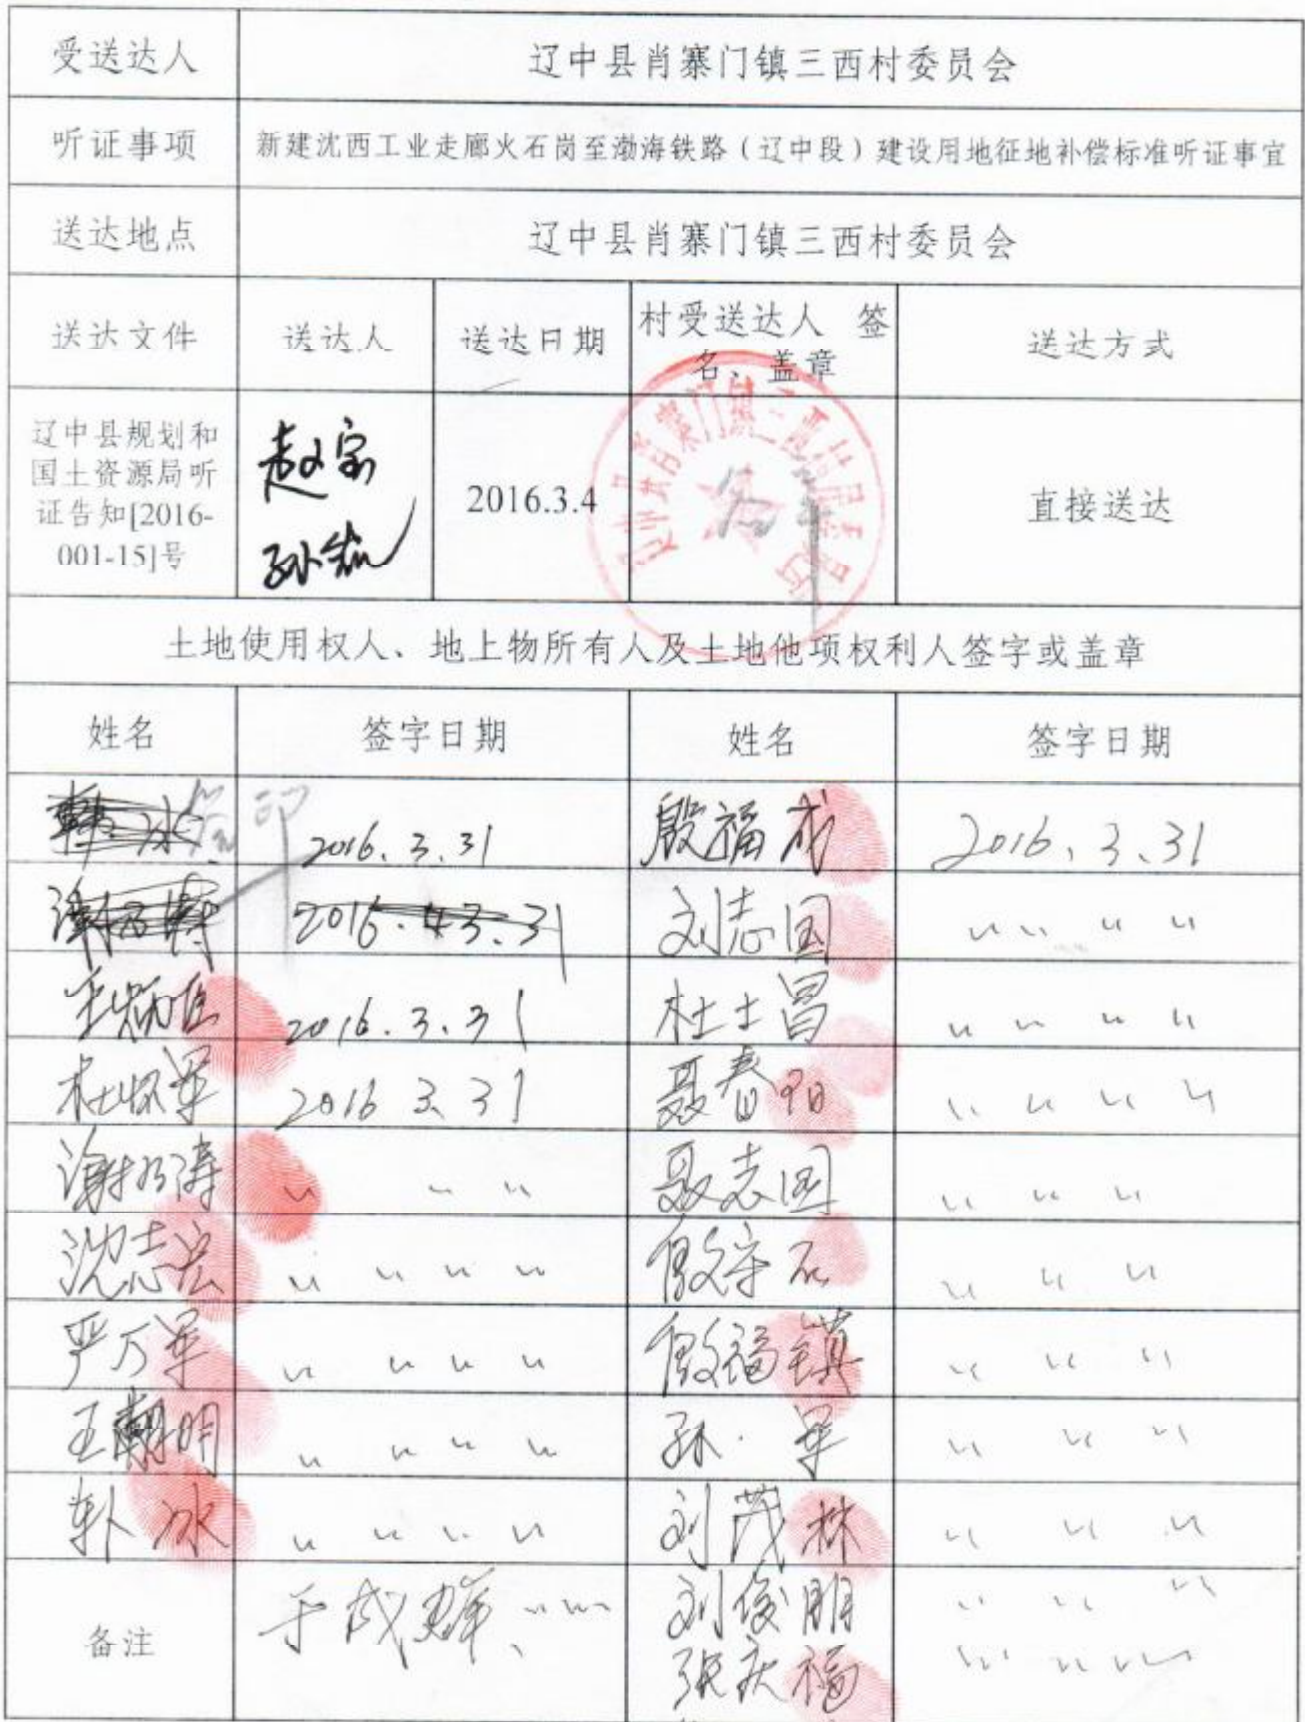 受送达人 辽中县肖寨门镇三西村委员会
听证事项 新建沈西工业走廊火石岗至渤海铁路（辽中段）建设用地征地补偿标准听证事宜
送达地点 辽中县肖寨门镇三西村委员会
送达文件 送达人 送达日期 村受送达人 签名、盖章 送达方式
辽中县规划和
国土资源局听
证告知[2016-
001-15]号
赵宝
孙
2016.3.4
直接送达
土地使用权人、地上物所有人及土地他项权利人签字或盖章
姓名 签字日期 姓名 签字日期
2016.3.31 殷福成 2016.3.31
2016. 3.31 刘志国 〃 〃 〃 〃
王炳 2016.3.31 杜士昌 〃 〃 〃 〃
杜怀军 2016 3.31 聂春阳 〃 〃 〃 〃
谢乃涛 〃 〃 〃 聂志国 〃 〃 〃
沈志宏 〃 〃 〃 〃 守石 〃 〃 〃
严万军 〃 〃 〃 〃 福镇 〃 〃 〃
王朝明 〃 〃 〃 〃 孙军 〃 〃 〃
冰 〃 〃 〃 〃 刘茂林 〃 〃 〃
备注 于成群 〃 〃 刘俊明 〃 〃 〃
张庆福 〃 〃 〃